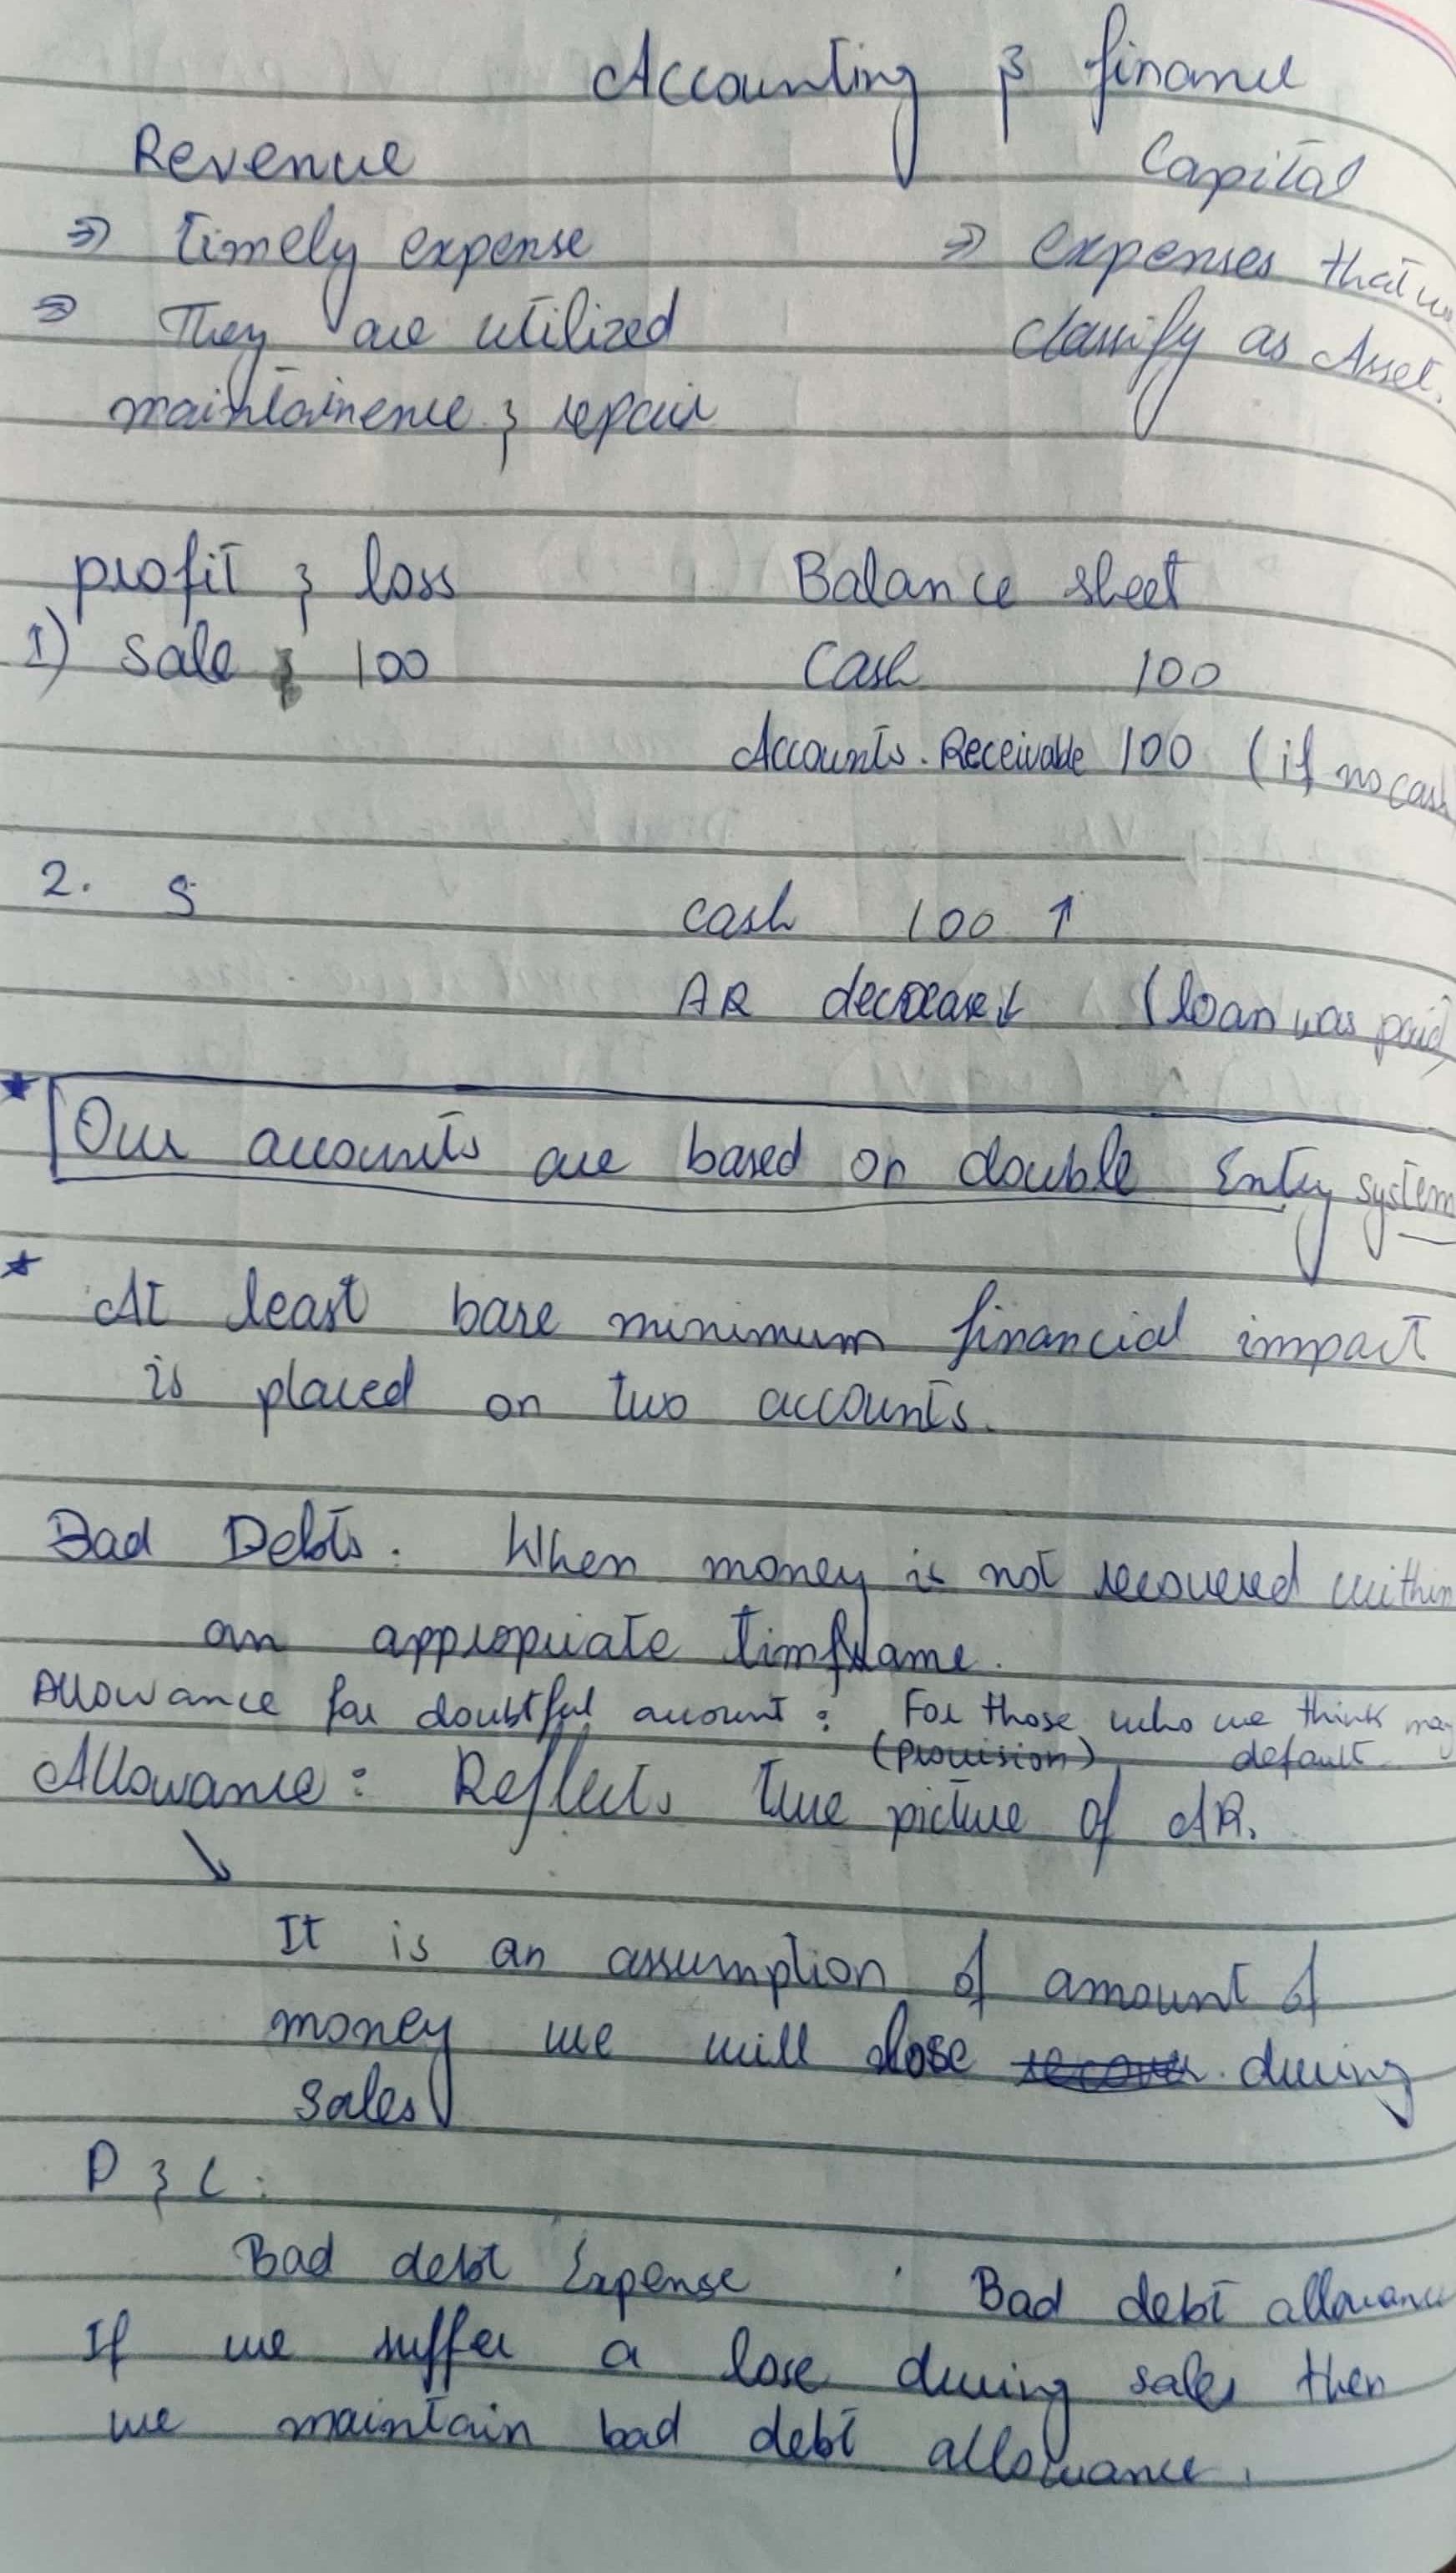 Accounting & finance
Revenue Capital
⇒ timely expense ⇒ expenses that
⇒ They are utilized classify as Asset.
maintainence & repair
profit & loss Balance sheet
1) Sale 100 Cash 100
Accounts. Receivable 100 (if no cash
2. S cash 100 ↑
AR decrease ↓ (loan was paid)
* Our accounts are based on double Entry system
* At least bare minimum financial impact
is placed on two accounts.
Bad Debts. When money is not recovered within
an appropriate timframe.
Allowance for doubtful account : For those who we think may
(provision) default
Allowance : Reflects true picture of AR.
↘
It is an assumption of amount of
money we will lose recover during
sales
P & L :
Bad debt Expense Bad debt allowance
If we suffer a lose during sales then
we maintain bad debt allowance.